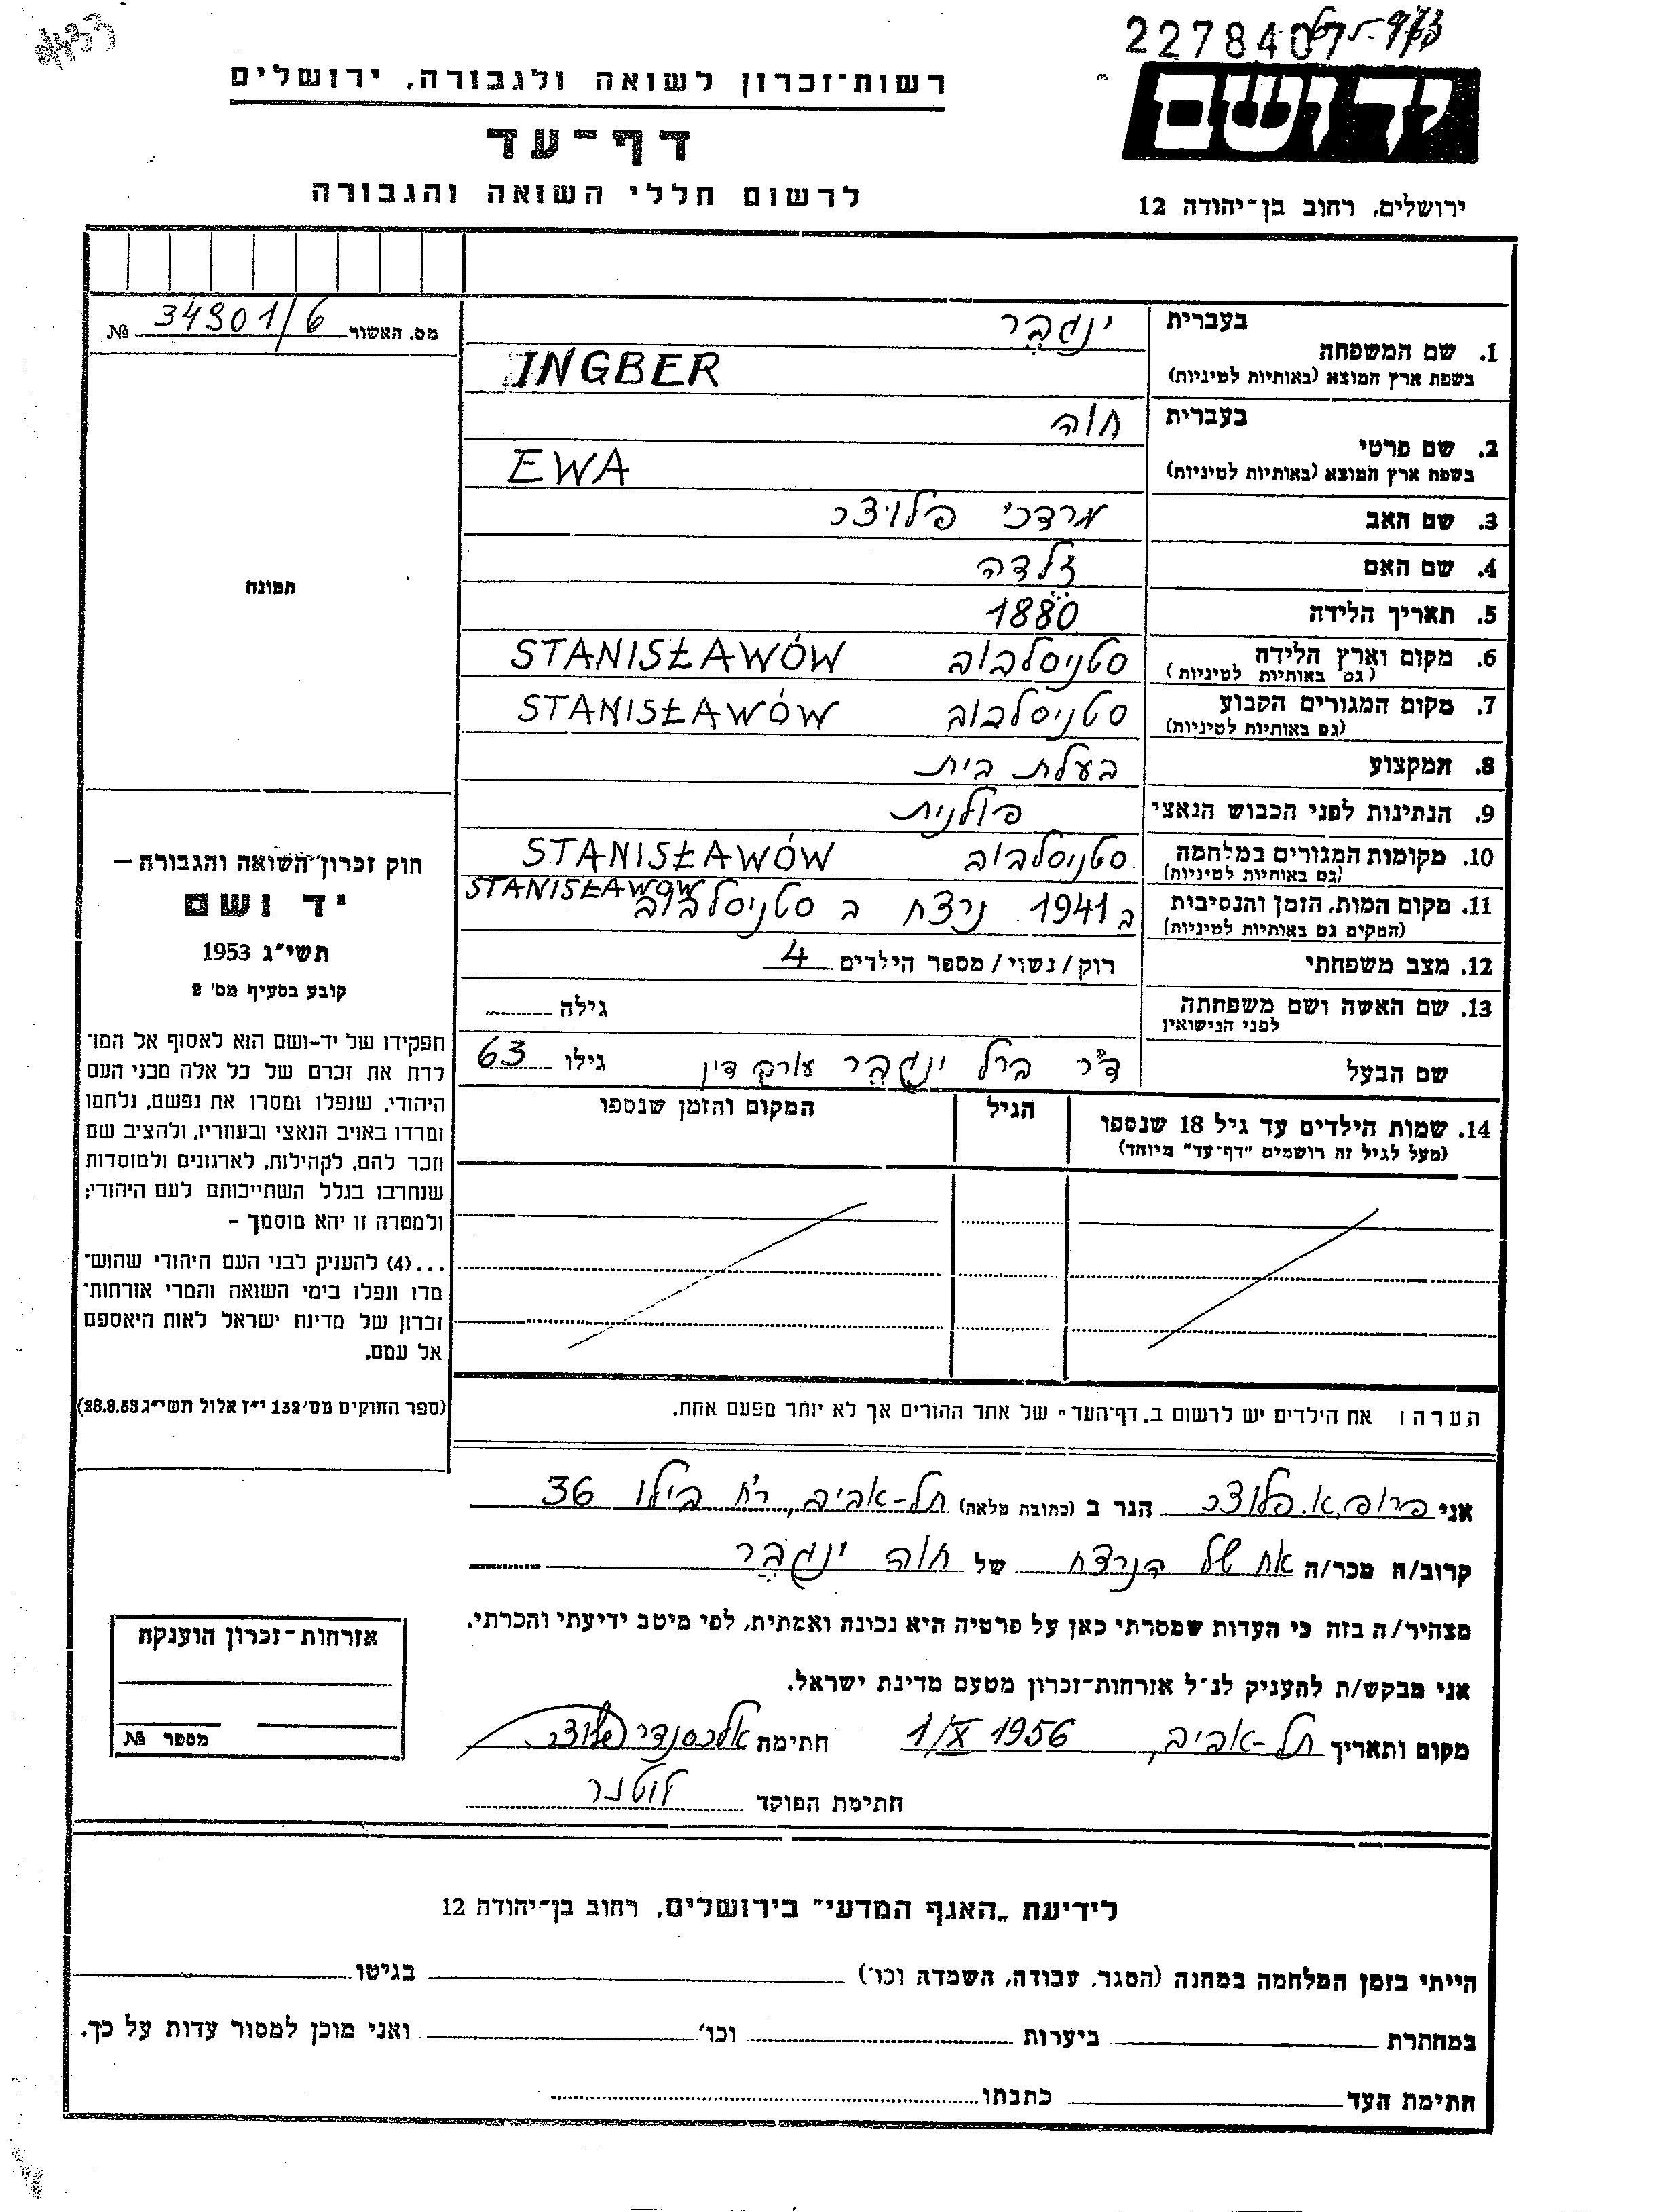 2278407
4433
רשות־זכרון לשואה ולגבורה, ירושלים
יד ושם
דף־עד
לרשום חללי השואה והגבורה
ירושלים, רחוב בן־יהודה 12
מס. האשור 34901/6 №
1. שם המשפחה בעברית ינגבר
בשפת ארץ המוצא (באותיות לטיניות) INGBER
2. שם פרטי בעברית חוה
בשפת ארץ המוצא (באותיות לטיניות) EWA
3. שם האב מרדכי פלויצר
4. שם האם זלדה
5. תאריך הלידה 1880
6. מקום וארץ הלידה סטניסלבוב STANISŁAWÓW
(גם באותיות לטיניות)
7. מקום המגורים הקבוע סטניסלבוב STANISŁAWÓW
(גם באותיות לטיניות)
8. המקצוע בעלת בית
9. הנתינות לפני הכבוש הנאצי פולנית
10. מקומות המגורים במלחמה סטניסלבוב STANISŁAWÓW
(גם באותיות לטיניות)
11. מקום המות, הזמן והנסיבות ב 1941 נרצח ב סטניסלבוב STANISŁAWÓW
(המקים גם באותיות לטיניות)
12. מצב משפחתי רוק/נשוי/מספר הילדים 4
13. שם האשה ושם משפחתה גילה
לפני הנישואין
שם הבעל ד"ר ברל ינגבר עורק דין גילו 63
14. שמות הילדים עד גיל 18 שנספו הגיל המקום והזמן שנספו
(מעל לגיל זה רושמים "דף־עד" מיוחד)
תמונה
חוק זכרון השואה והגבורה —
יד ושם
תשי"ג 1953
קובע בסעיף מס' 2
תפקידו של יד-ושם הוא לאסוף אל המו־
לדת את זכרם של כל אלה מבני העם
היהודי, שנפלו ומסרו את נפשם, נלחמו
ומרדו באויב הנאצי ובעוזריו, ולהציב שם
וזכר להם, לקהילות, לארגונים ולמוסדות
שנחרבו בגלל השתייכותם לעם היהודי;
ולמטרה זו יהא מוסמך -
...(4) להעניק לבני העם היהודי שהוש־
מדו ונפלו בימי השואה והמרי אזרחות־
זכרון של מדינת ישראל לאות היאספם
אל עמם.
(ספר החוקים מס' 132 י"ז אלול תשי"ג 28.8.53)
הערה: את הילדים יש לרשום ב„דף־העד" של אחד ההורים אך לא יותר מפעם אחת.
אני פרופ. א. פלוצר הגר ב (כתובת מלאה) תל-אביב, רח בילו 36
קרוב/ה מכר/ה אח של הנרצח של חוה ינגבר
מצהיר/ה בזה כי העדות שמסרתי כאן על פרטיה היא נכונה ואמתית, לפי מיטב ידיעתי והכרתי.
אני מבקש/ת להעניק לנ"ל אזרחות־זכרון מטעם מדינת ישראל.
מקום ותאריך תל-אביב, 1/X 1956 חתימה אלכסנדר פלוצר
חתימת הפוקד
אזרחות־זכרון הוענקה
מספר №
לידיעת „האגף המדעי" בירושלים, רחוב בן־יהודה 12
הייתי בזמן המלחמה במחנה (הסגר, עבודה, השמדה וכו') בגיטו
במחתרת ביערות וכו' ואני מוכן למסור עדות על כך.
חתימת העד כתבתו